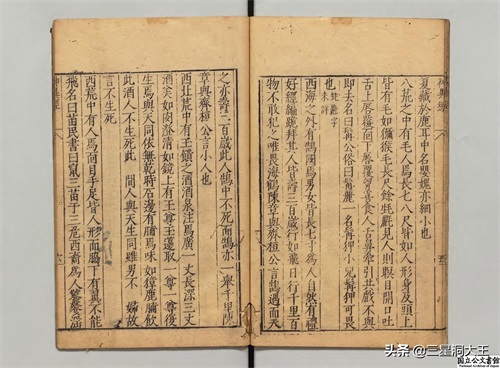 夏藏於鹿耳中名亦細小也
八荒之中有毛人焉長七八尺皆如人形身及頭上
皆有毛如獼猴毛長尺餘見人則瞑目開口吐
舌上唇面下唇覆胷喜食人舌鼻牽引共戲不與
即去名曰髯公俗曰髯麗一名髯狎小兒髯狎可畏
也
西海之外有鵠國焉男女皆長七寸為人自然有禮
好經綸跪拜其人皆壽三百歲行如飛日行千里百
物不敢犯之唯畏海鵠陳章與齊桓公言鵠遇而天
之亦壽三百歲此人鵠中不死而鵠亦一舉千里陳
章與齊桓公言小人也
西北荒中有玉饋之酒酒泉注焉廣一丈長深三丈
酒美如肉澄清如鏡上有玉尊玉籩取一尊一尊復
生焉與天同休無乾時石邊有脯焉味如獐鹿脯飲
此酒人不生死此一間人與天生同雖男不婦故
言不生死
西荒中有人焉面目手足皆人形而胳下有翼不能
飛名曰苗民書曰竄三苗于三危西裔為人饕餮淫
頭条 @三星洞大王
国立公文書館
National Archives of Japan